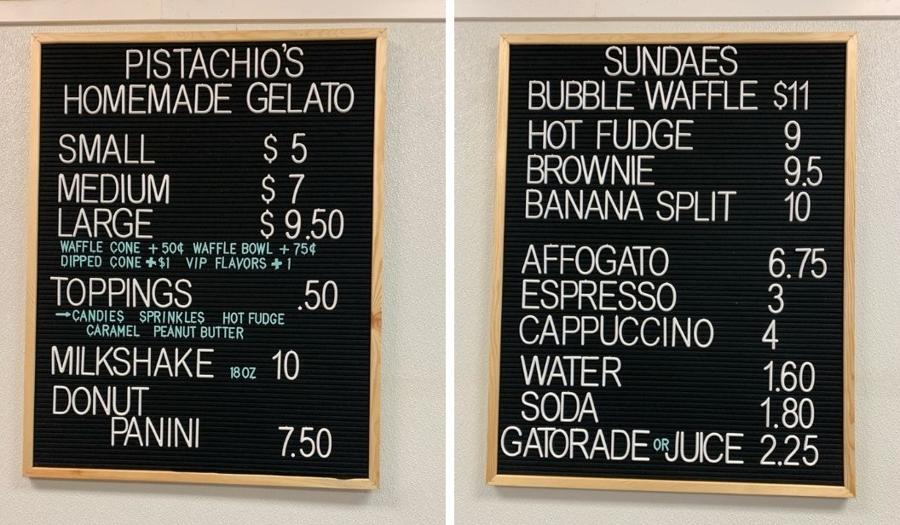 PISTACHIO'S
HOMEMADE GELATO
SMALL $ 5
MEDIUM $ 7
LARGE $ 9.50
WAFFLE CONE + 50¢ WAFFLE BOWL + 75¢
DIPPED CONE +$1 VIP FLAVORS + 1
TOPPINGS .50
→CANDIES SPRINKLES HOT FUDGE
CARAMEL PEANUT BUTTER
MILKSHAKE 18OZ 10
DONUT
PANINI 7.50
SUNDAES
BUBBLE WAFFLE $11
HOT FUDGE 9
BROWNIE 9.5
BANANA SPLIT 10
AFFOGATO 6.75
ESPRESSO 3
CAPPUCCINO 4
WATER 1.60
SODA 1.80
GATORADE OR JUICE 2.25